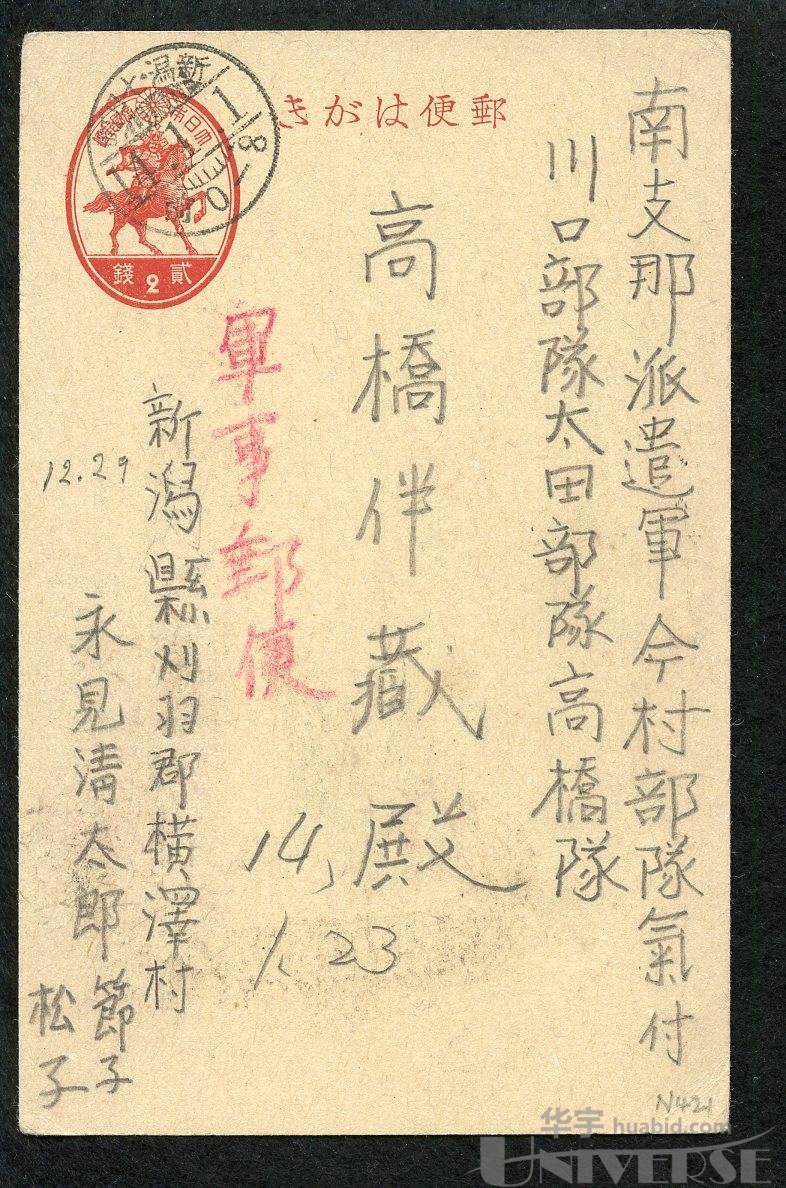 郵便はがき
南支那派遣軍今村部隊氣付
川口部隊太田部隊高橋隊
高橋伴藏殿
軍事郵便
14,
1.23
新潟縣刈羽郡横澤村
12.29
永見清太郎
節子
松子
新潟
14.1.1
0-8
貳錢
2
N421
华宇 huabid.com
UNIVERSE